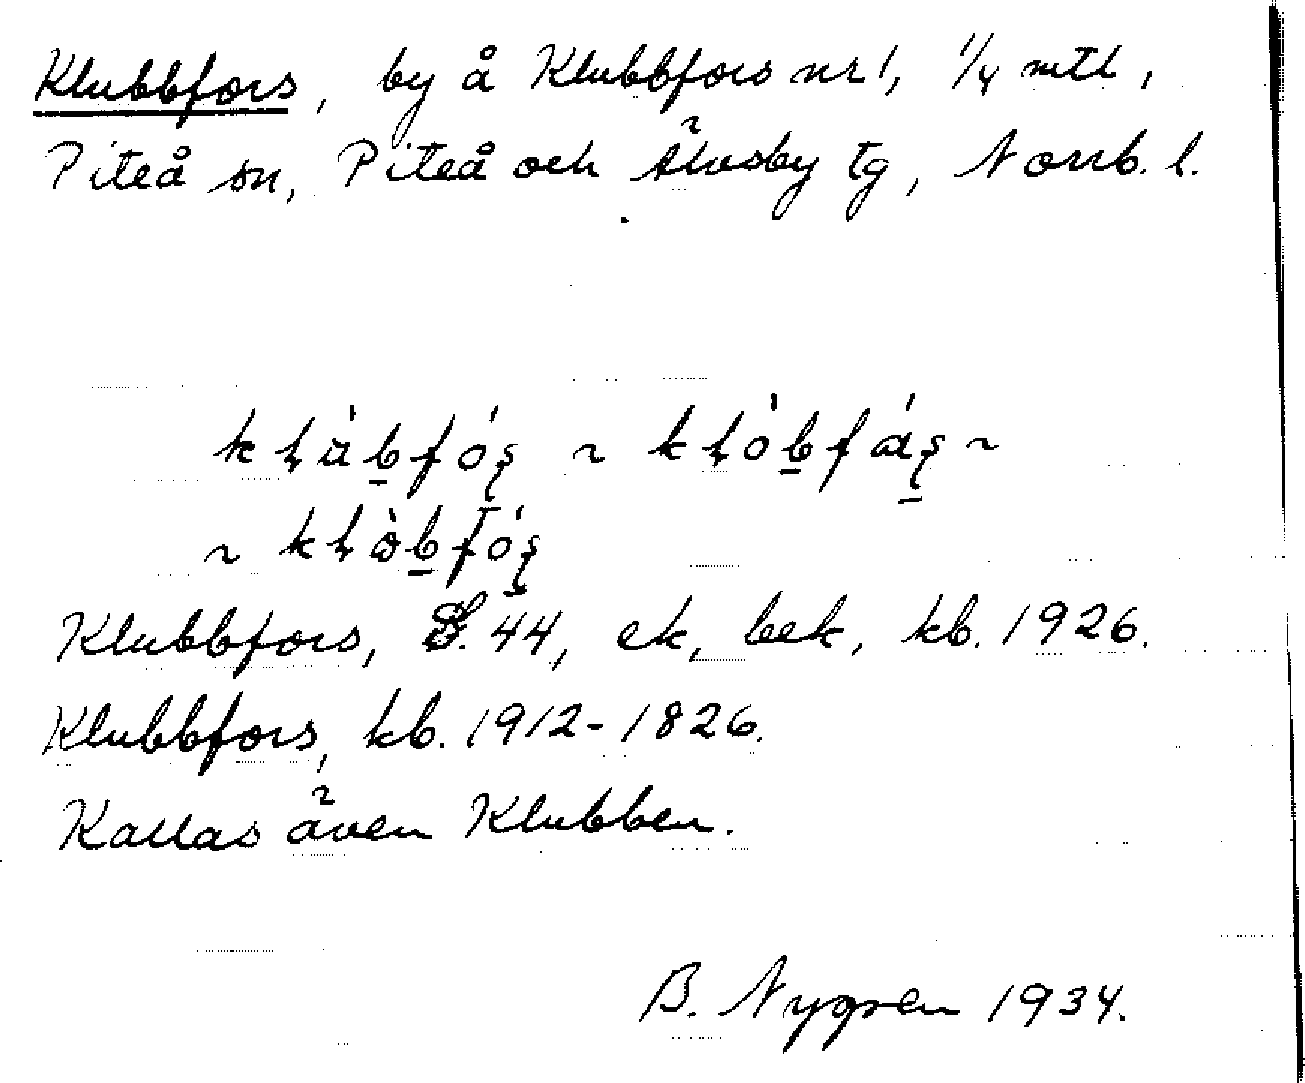 Klubbfors, by å Klubbfors nr 1, 1/4 mtl,
Piteå sn, Piteå och Älvsby tg, Norrb. l.
Klubbfors, 44, ek, bek, kb. 1926.
Klubbfors, kb. 1912-1826.
Kallas även Klubben.
B. Nygren 1934.